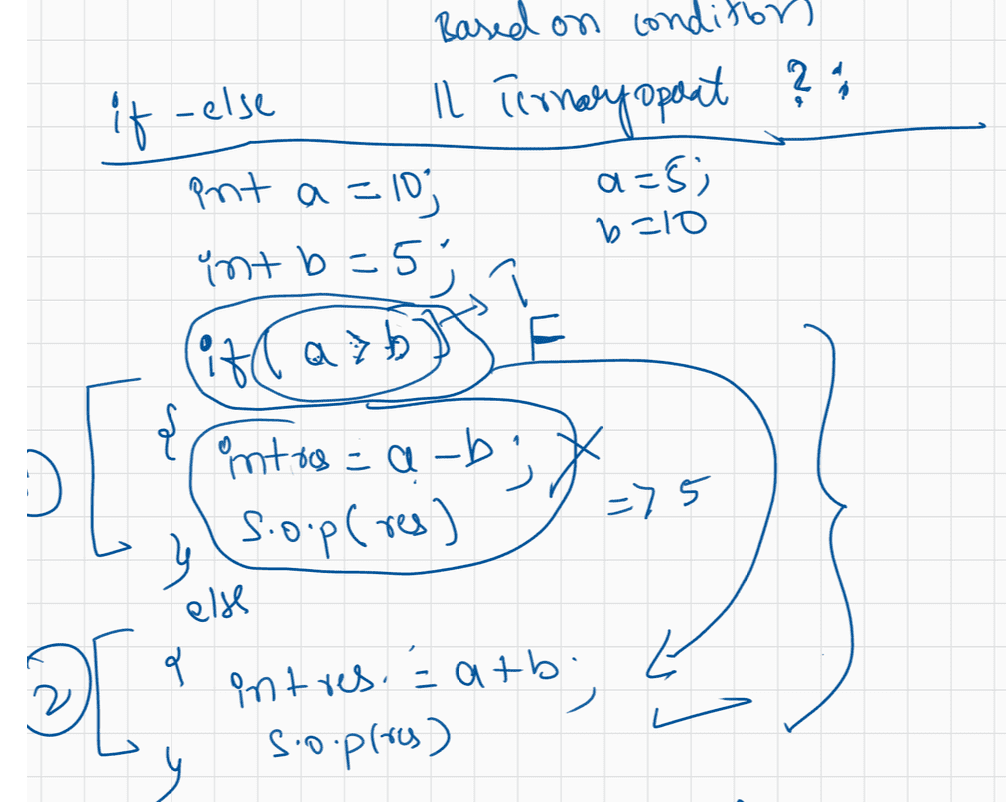 Based on condition
if - else || Ternary opart ? :
int a = 10; a = 5;
int b = 5; b = 10
if (a > b) T
F
{
int res = a - b; X
S.o.p(res) => 5
}
else
2 { int res. = a + b;
S.o.p(res)
}